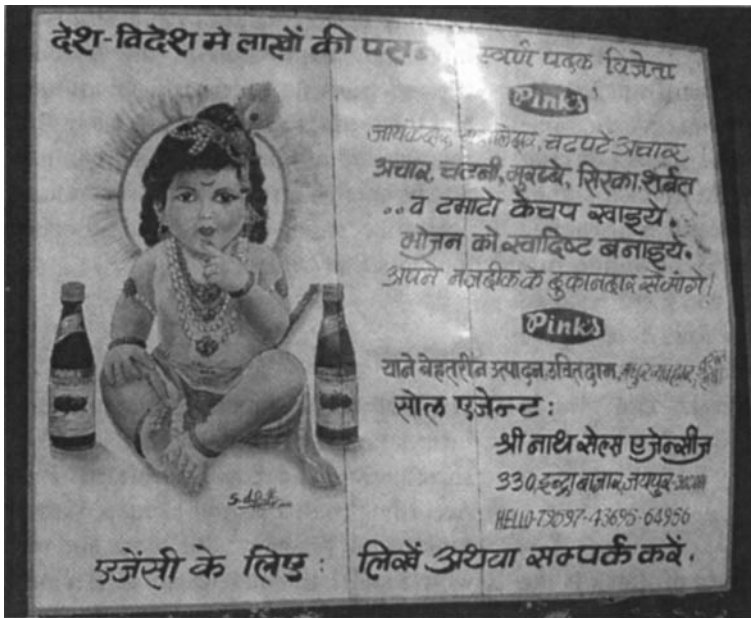 देश-विदेश मे लाखों की पसन्द स्वर्ण पदक विजेता
Pink's
जायकेदार, चटपटे अचार
अचार, चटनी, मुरब्बे, सिरका, शर्बत
..व टमाटो केचप खाइये.
भोजन को स्वादिष्ट बनाइये.
अपने नजदीक के दुकानदार से मांगे!
Pink's
याने बेहतरीन उत्पादन, उचित दाम, मधुर व्यवहार,
सोल एजेन्ट :
श्री नाथ सेल्स एजेन्सीज
330, इन्द्रा बाजार, जयपुर-
HELLO-79597-43695-64956
एजेंसी के लिए : लिखें अथवा सम्पर्क करें.